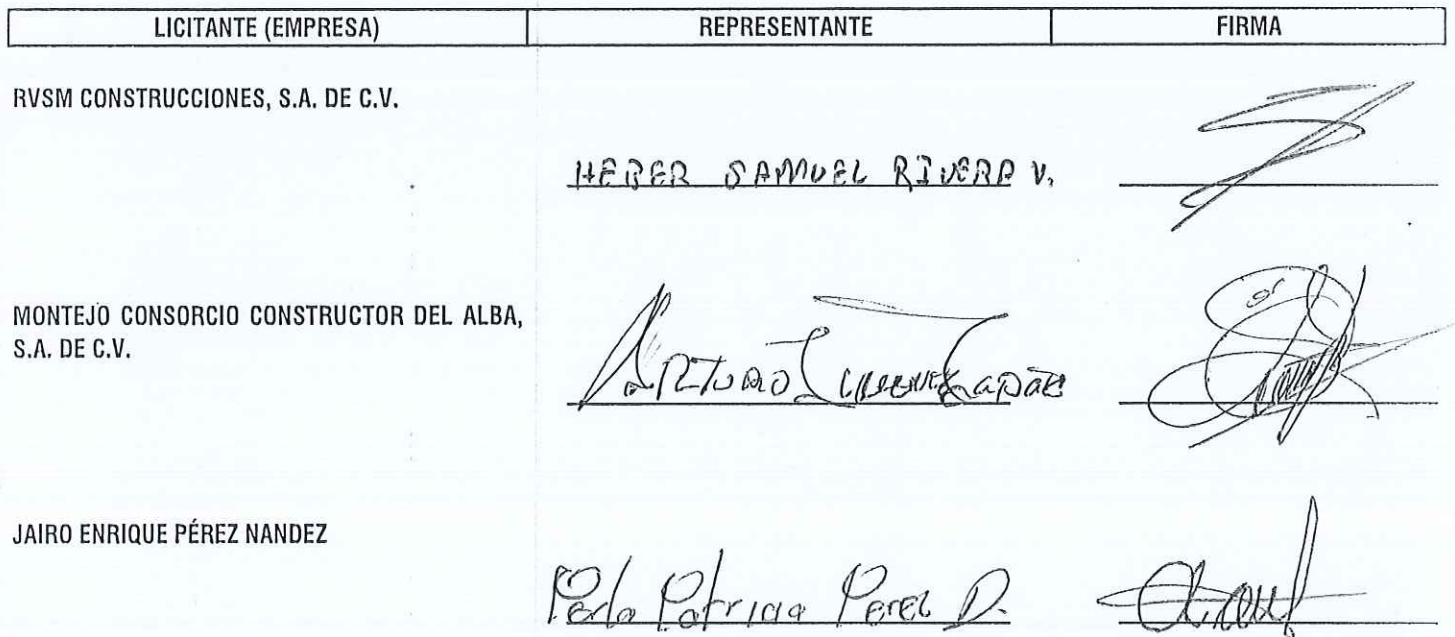 LICITANTE (EMPRESA) REPRESENTANTE FIRMA
RVSM CONSTRUCCIONES, S.A. DE C.V.
HEBER SAMUEL RIVERA V.
MONTEJO CONSORCIO CONSTRUCTOR DEL ALBA,
S.A. DE C.V.
ARTURO
JAIRO ENRIQUE PÉREZ NANDEZ
Perla Patricia Perez D.